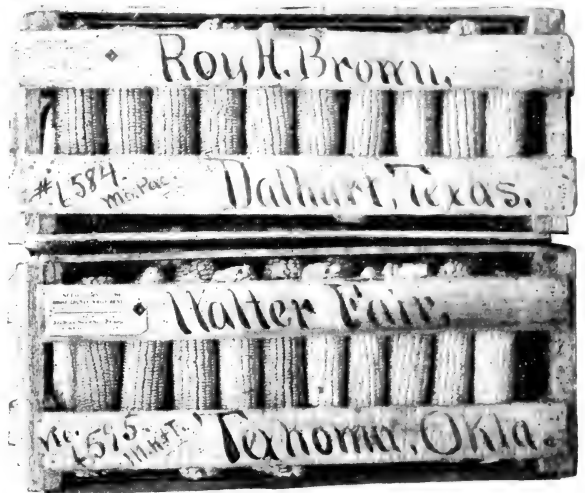 Roy H. Brown.
#1584. Mo. Pac.
Dalhart, Texas.
Walter Fair,
1595. M.K.&T.
Texhoma, Okla.